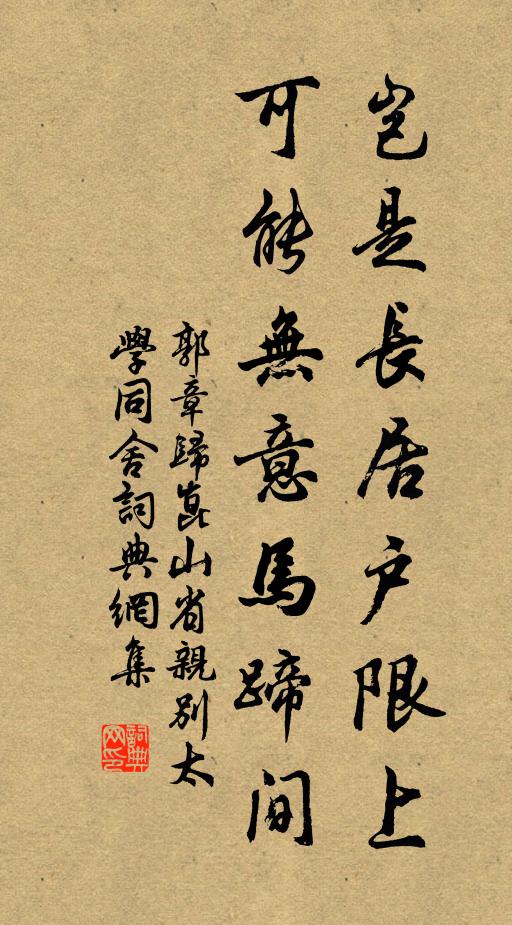 豈是長居户限上
可能無意馬蹄間
郭章歸崑山省親別太
學同舍詞典網集
詞典
网印